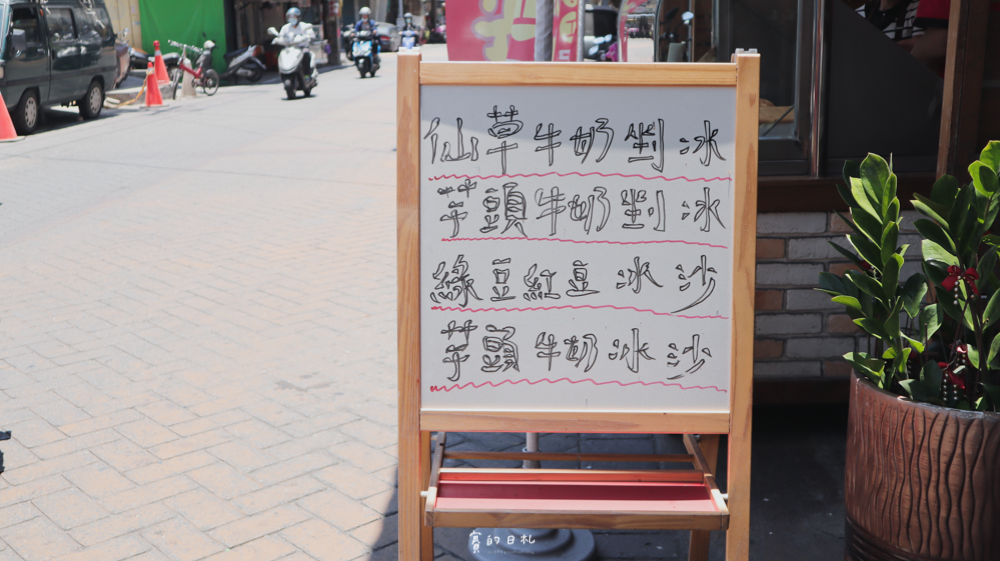 仙草牛奶剉冰
芋頭牛奶剉冰
綠豆紅豆冰沙
芋頭牛奶冰沙
賓的日札